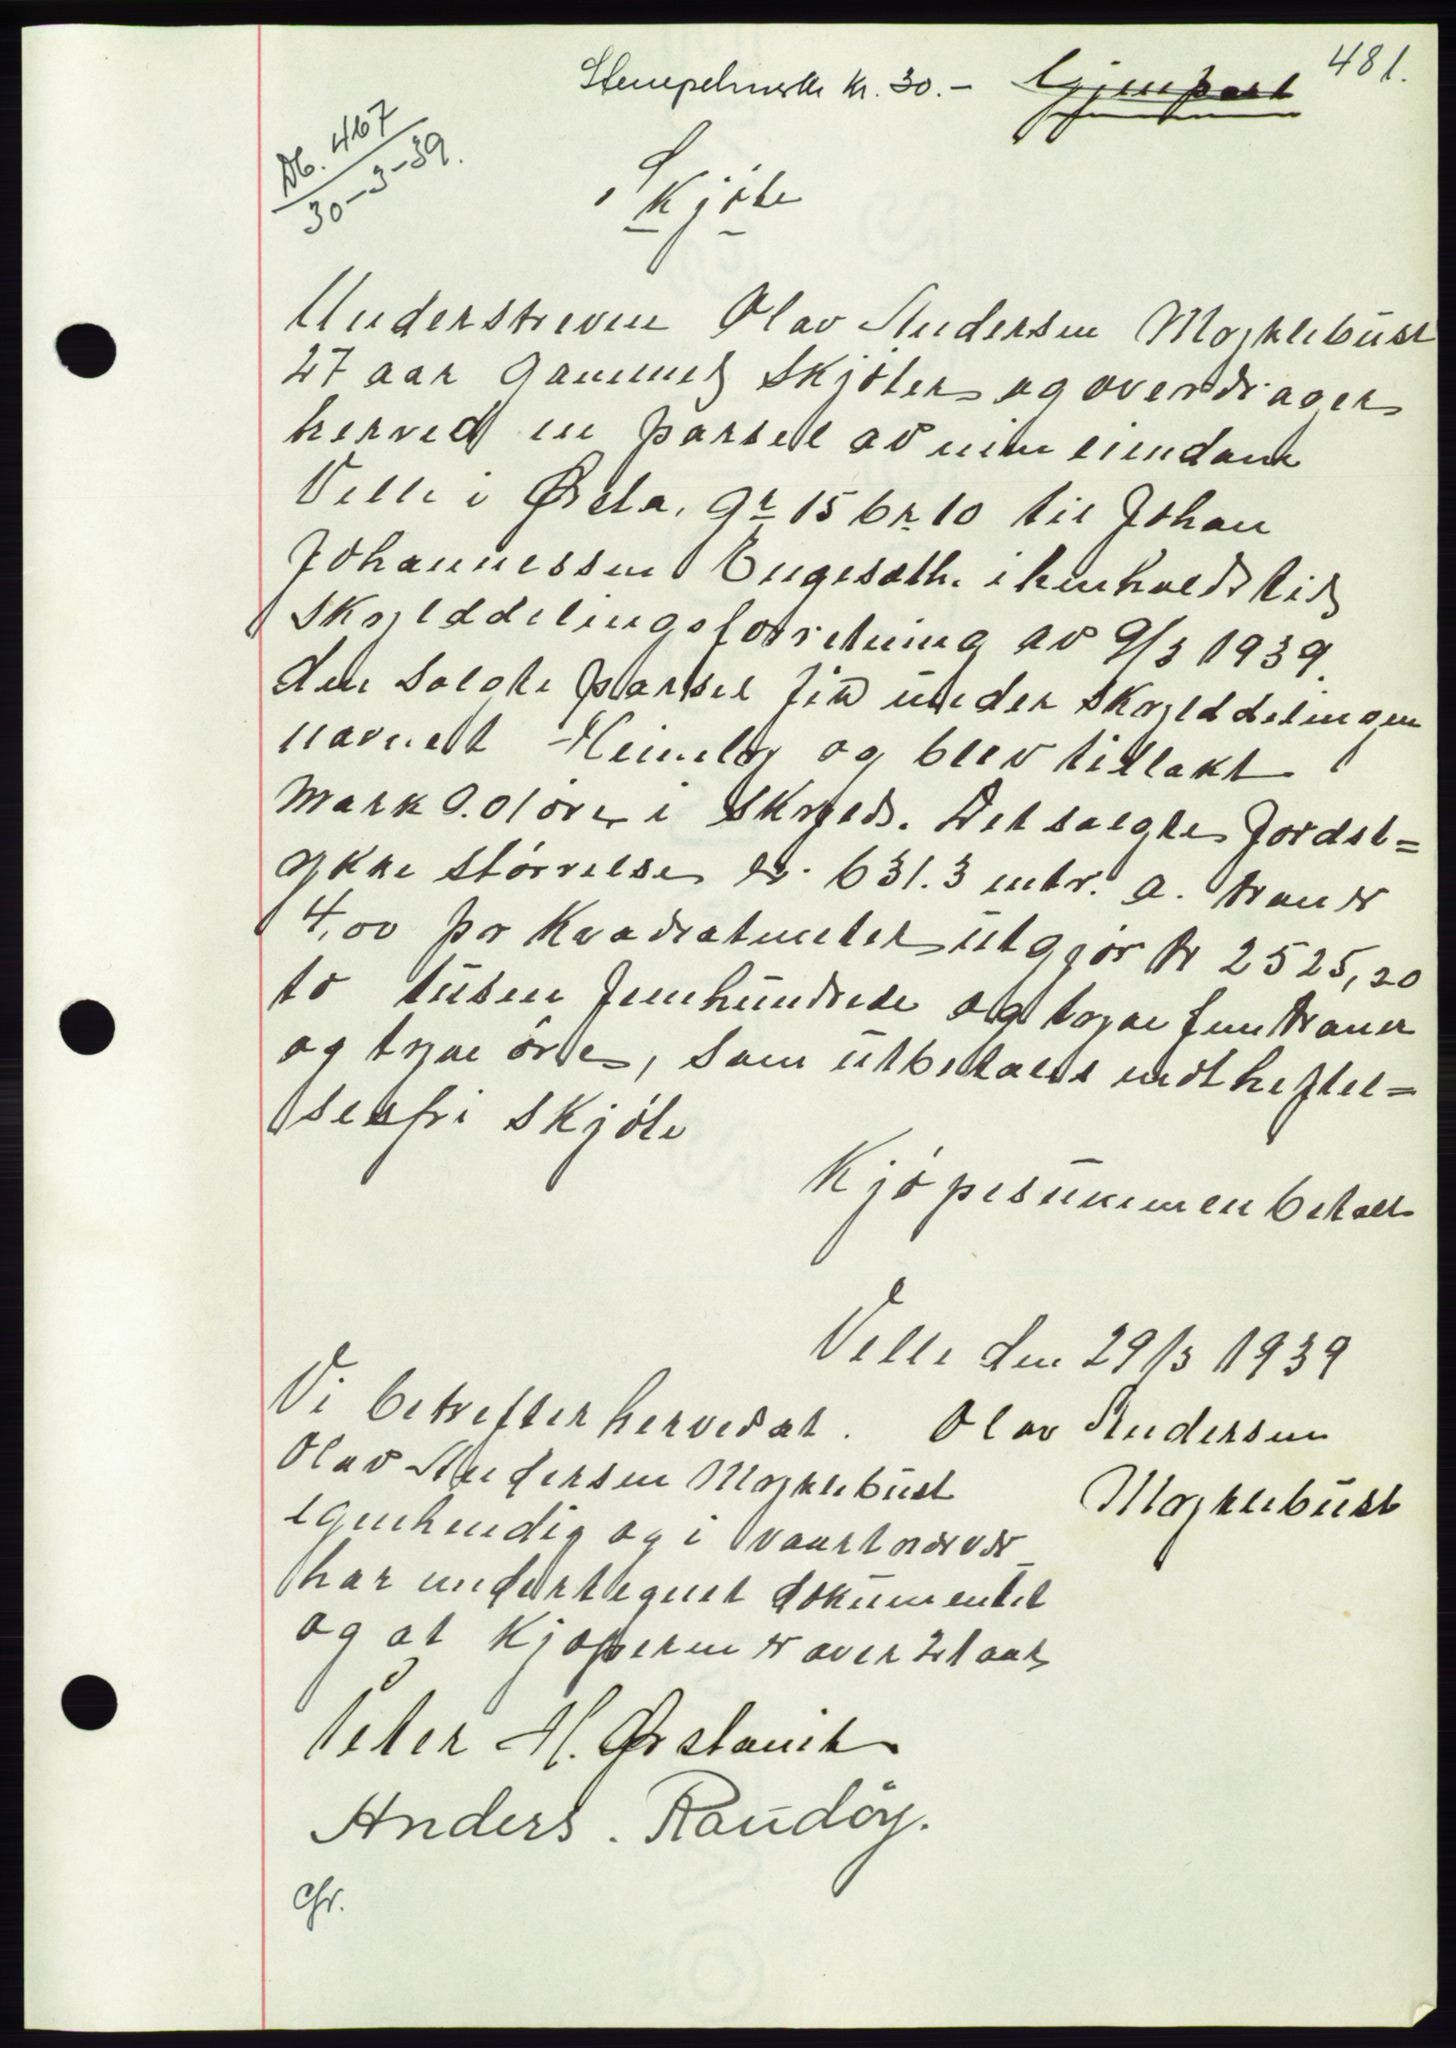 481.
Stempelmerke kr. 30.- Gjenpart
Db. 467
30-3-39.
Skjöte
Underskreven Olav Andersen Myklebust
27 aar gammel skjöter og overdrager
herved en parsel av min eiendom
Velle i Ørsta, gr 15 br 10 til Johan
Johannessen Engeseth i henhold til
skylddelingsforretning av 9/3 1939.
den solgte parsel fik under skylddelingen
navnet Heimly og blev tillakt
mark 0.01 öre i skyld. Det solgte jordst=
ykke störrelse er 631.3 mtr. a. kroner
4,00 pr kvadratmeter utgjör kr 2525,20
to tusen femhundrede og tyve fem kroner
og tyve öre, som utbetales mot heftel=
sesfri skjöte
Kjöpesummen betalt
Velle den 29/3 1939
Vi bekrefter herved at. Olav Andersen
Olav Andersen Myklebust Myklebust
egenhendig og i vaart nærvær
har undertegnet dokumentet
og at kjøperen er over 21 aar
Peter H. Ørstavik
Anders. Raudöy.